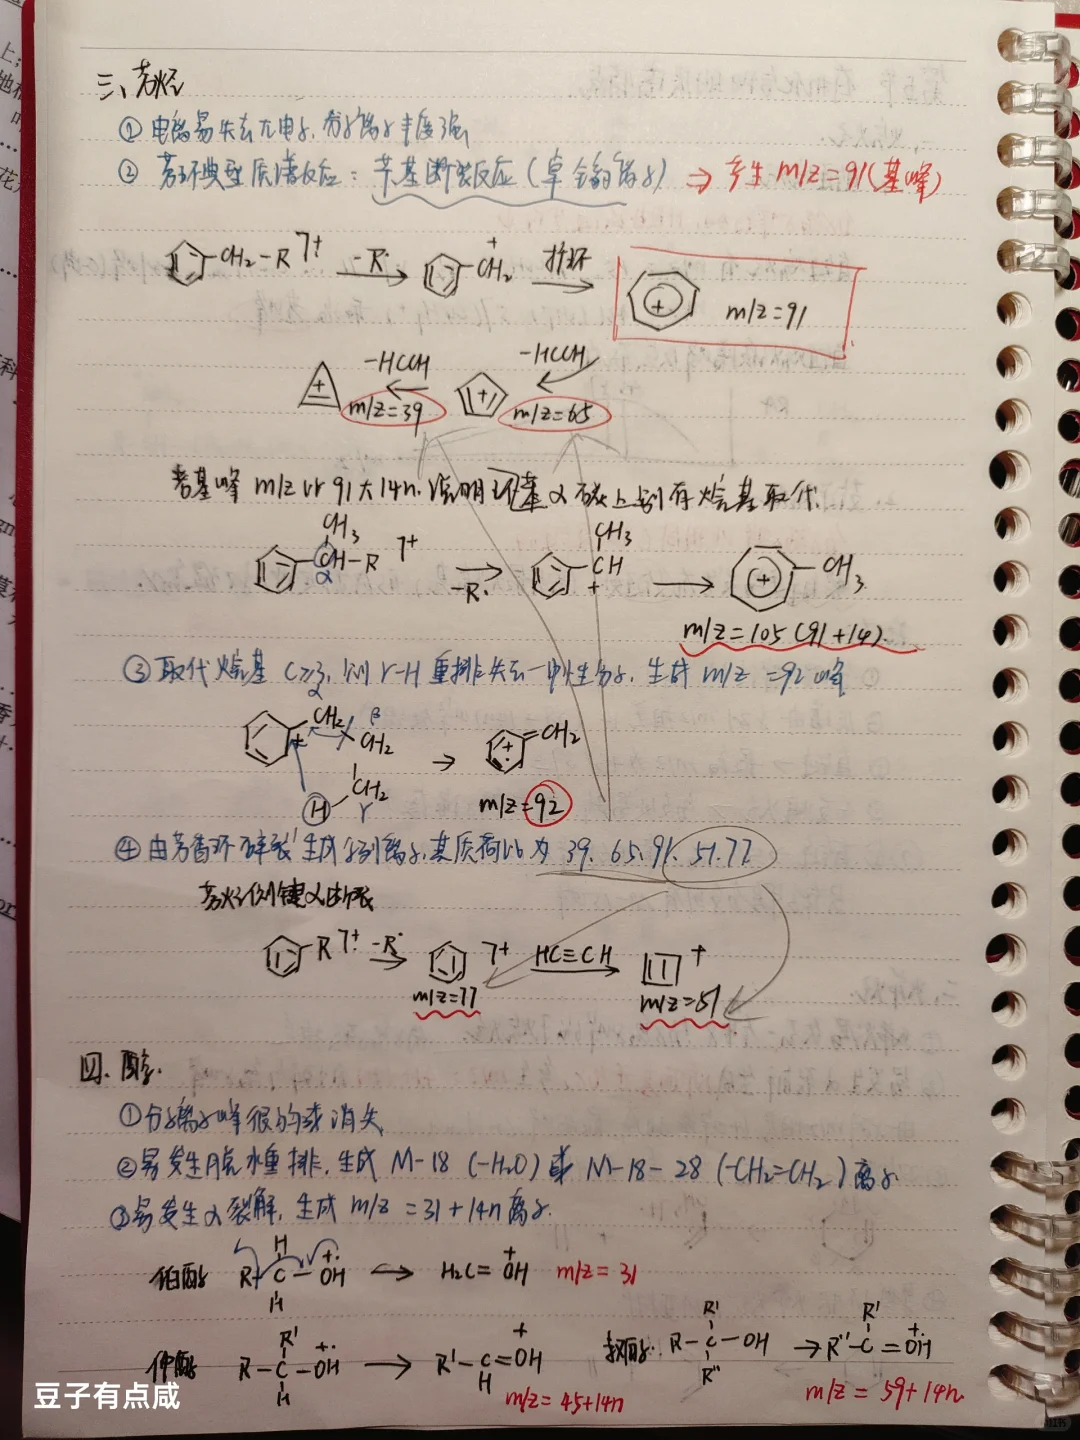 三、芳烃
① 电离易失去π电子,分子离子丰度强
② 芳环典型质谱反应:苄基断裂反应(卓鎓离子) ⇒ 产生 m/z=91(基峰)
CH2-R ⌉+ -R· CH2 + 扩环 + m/z=91
-HCCH -HCCH
+ m/z=39 + m/z=65
若基峰 m/z 比 91 大 14n, 说明 α碳上引有烷基取代.
CH3 CH-R ⌉+ α -R· CH3 CH + + CH3
m/z=105 (91+14).
③ 取代烷基 C≥3, 则 γ-H 重排失去一中性分子, 生成 m/z =92 峰
α CH2 β CH2 CH2 γ H → +· =CH2
m/z=92
④ 由芳香环碎裂生成系列离子,其质荷比为 39. 65. 91. 51. 77
芳烃侧键α断裂
R ⌉+· -R· ⌉+ HC≡CH +
m/z=77 m/z=51
四. 醇.
① 分子离子峰很弱或消失
② 易发生脱水重排, 生成 M-18 (-H2O) 或 M-18-28 (-CH2=CH2) 离子.
③ 易发生α裂解, 生成 m/z = 31+14n 离子.
伯醇 R-C-OH H H +· → H2C=OH + m/z=31
仲醇 R-C-OH R' H +· → R'-C=OH H + m/z=45+14n
叔醇: R-C-OH R' R'' → R''-C=OH R' + m/z = 59+14n
豆子有点咸